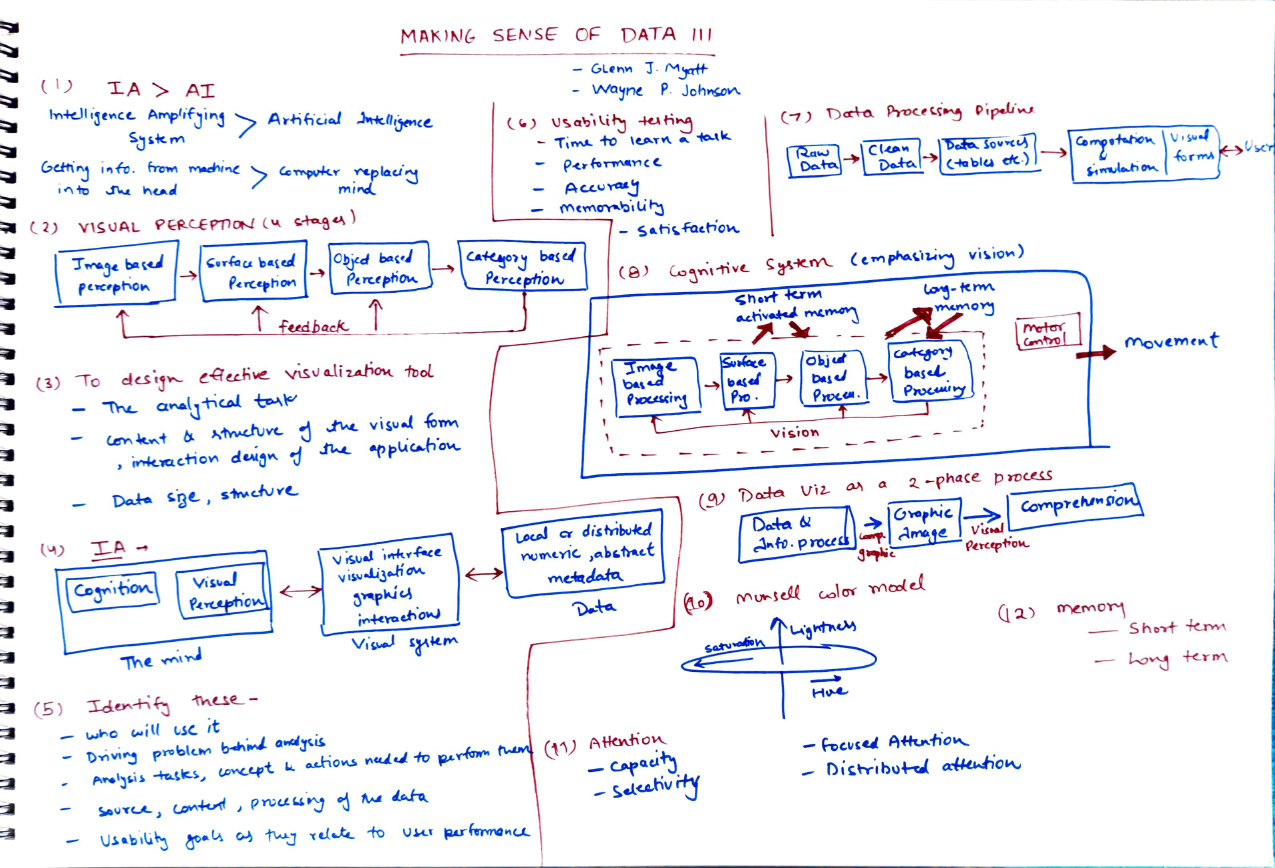 MAKING SENSE OF DATA III
- Glenn J. Myatt
- Wayne P. Johnson
(1) IA > AI
Intelligence Amplifying System > Artificial Intelligence
Getting info. from machine into the head > computer replacing mind
(2) VISUAL PERCEPTION (4 stages)
Image based perception
Surface based Perception
Object based Perception
Category based Perception
feedback
(3) To design effective visualization tool
- The analytical task
- content & structure of the visual form
, interaction design of the application
- Data size, structure
(4) IA →
Cognition
Visual Perception
The mind
Visual interface
visualization
graphics
interactions
Visual system
Local or distributed
numeric, abstract
metadata
Data
(5) Identify these -
- who will use it
- Driving problem behind analysis
- Analysis tasks, concept & actions needed to perform them
- source, content, processing of the data
- Usability goals as they relate to user performance
(6) Usability testing
- Time to learn a task
- Performance
- Accuracy
- memorability
- Satisfaction
(7) Data Processing Pipeline
Raw Data
Clean Data
Data sources (tables etc.)
Computation & simulation
Visual forms
User
(8) Cognitive System (emphasizing vision)
Short term
activated memory
long-term
memory
Motor control
movement
Image based Processing
Surface based Pro.
Object based Proces.
Category based Processing
Vision
(9) Data Viz as a 2-phase process
Data & Info. process
Comp. graphic
Graphic Image
Visual Perception
Comprehension
(10) Munsell color model
Lightness
saturation
Hue
(11) Attention
- Capacity
- Selectivity
- Focused Attention
- Distributed attention
(12) memory
- Short term
- Long term